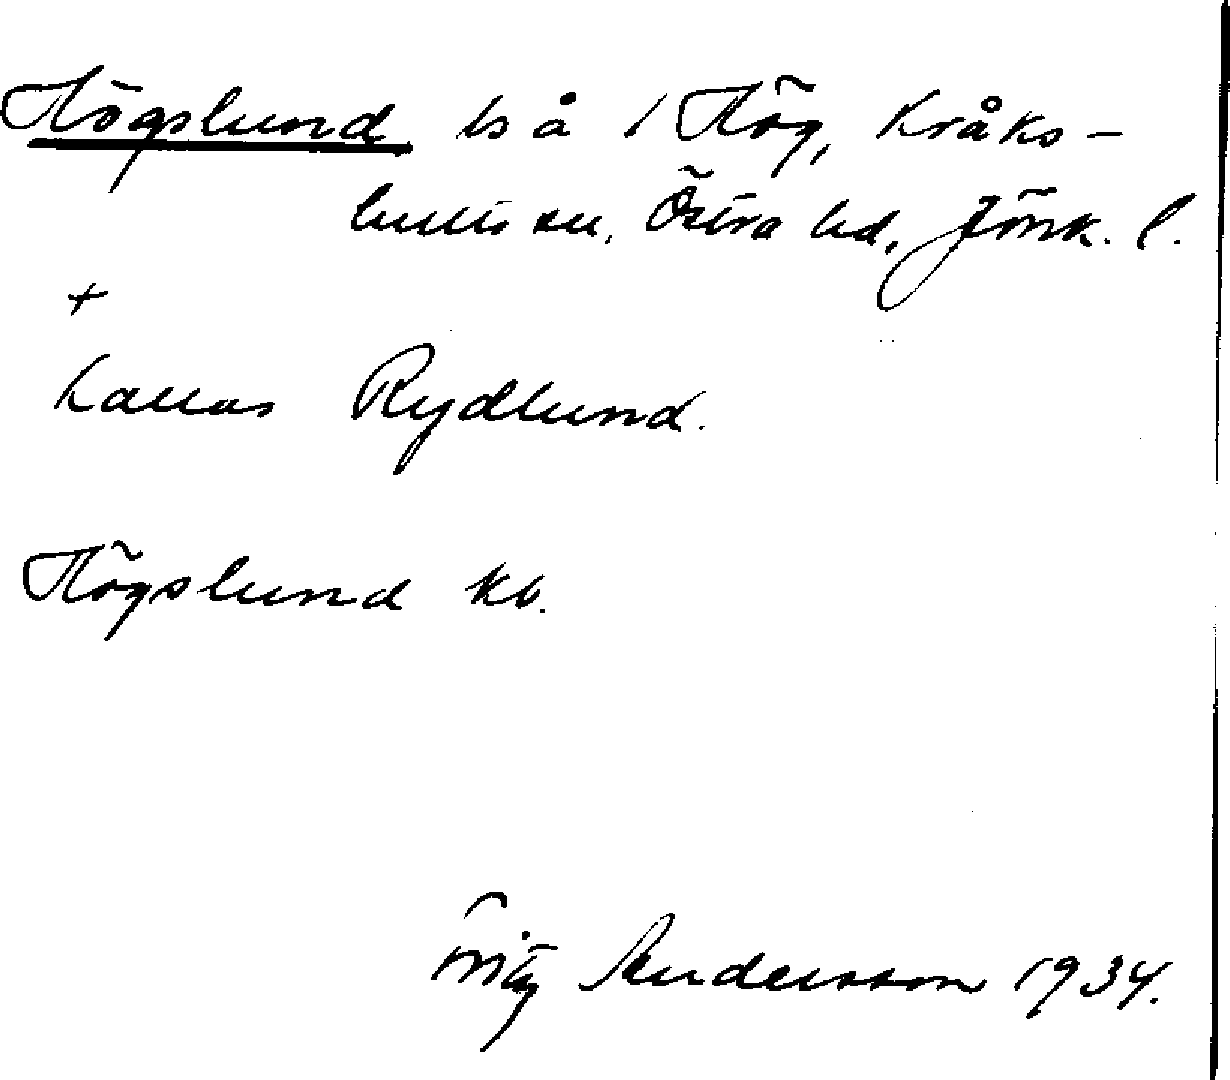 Högslund ls å 1 Hög, Kråks-
hults sn, Östra hd, Jönk. l.
+
Kallas Rydlund.
Högslund kb.
Fritz Andersson 1934.